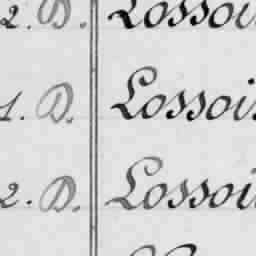 2. D. Lossoi
1. D. Lossois
2. D. Lossoi